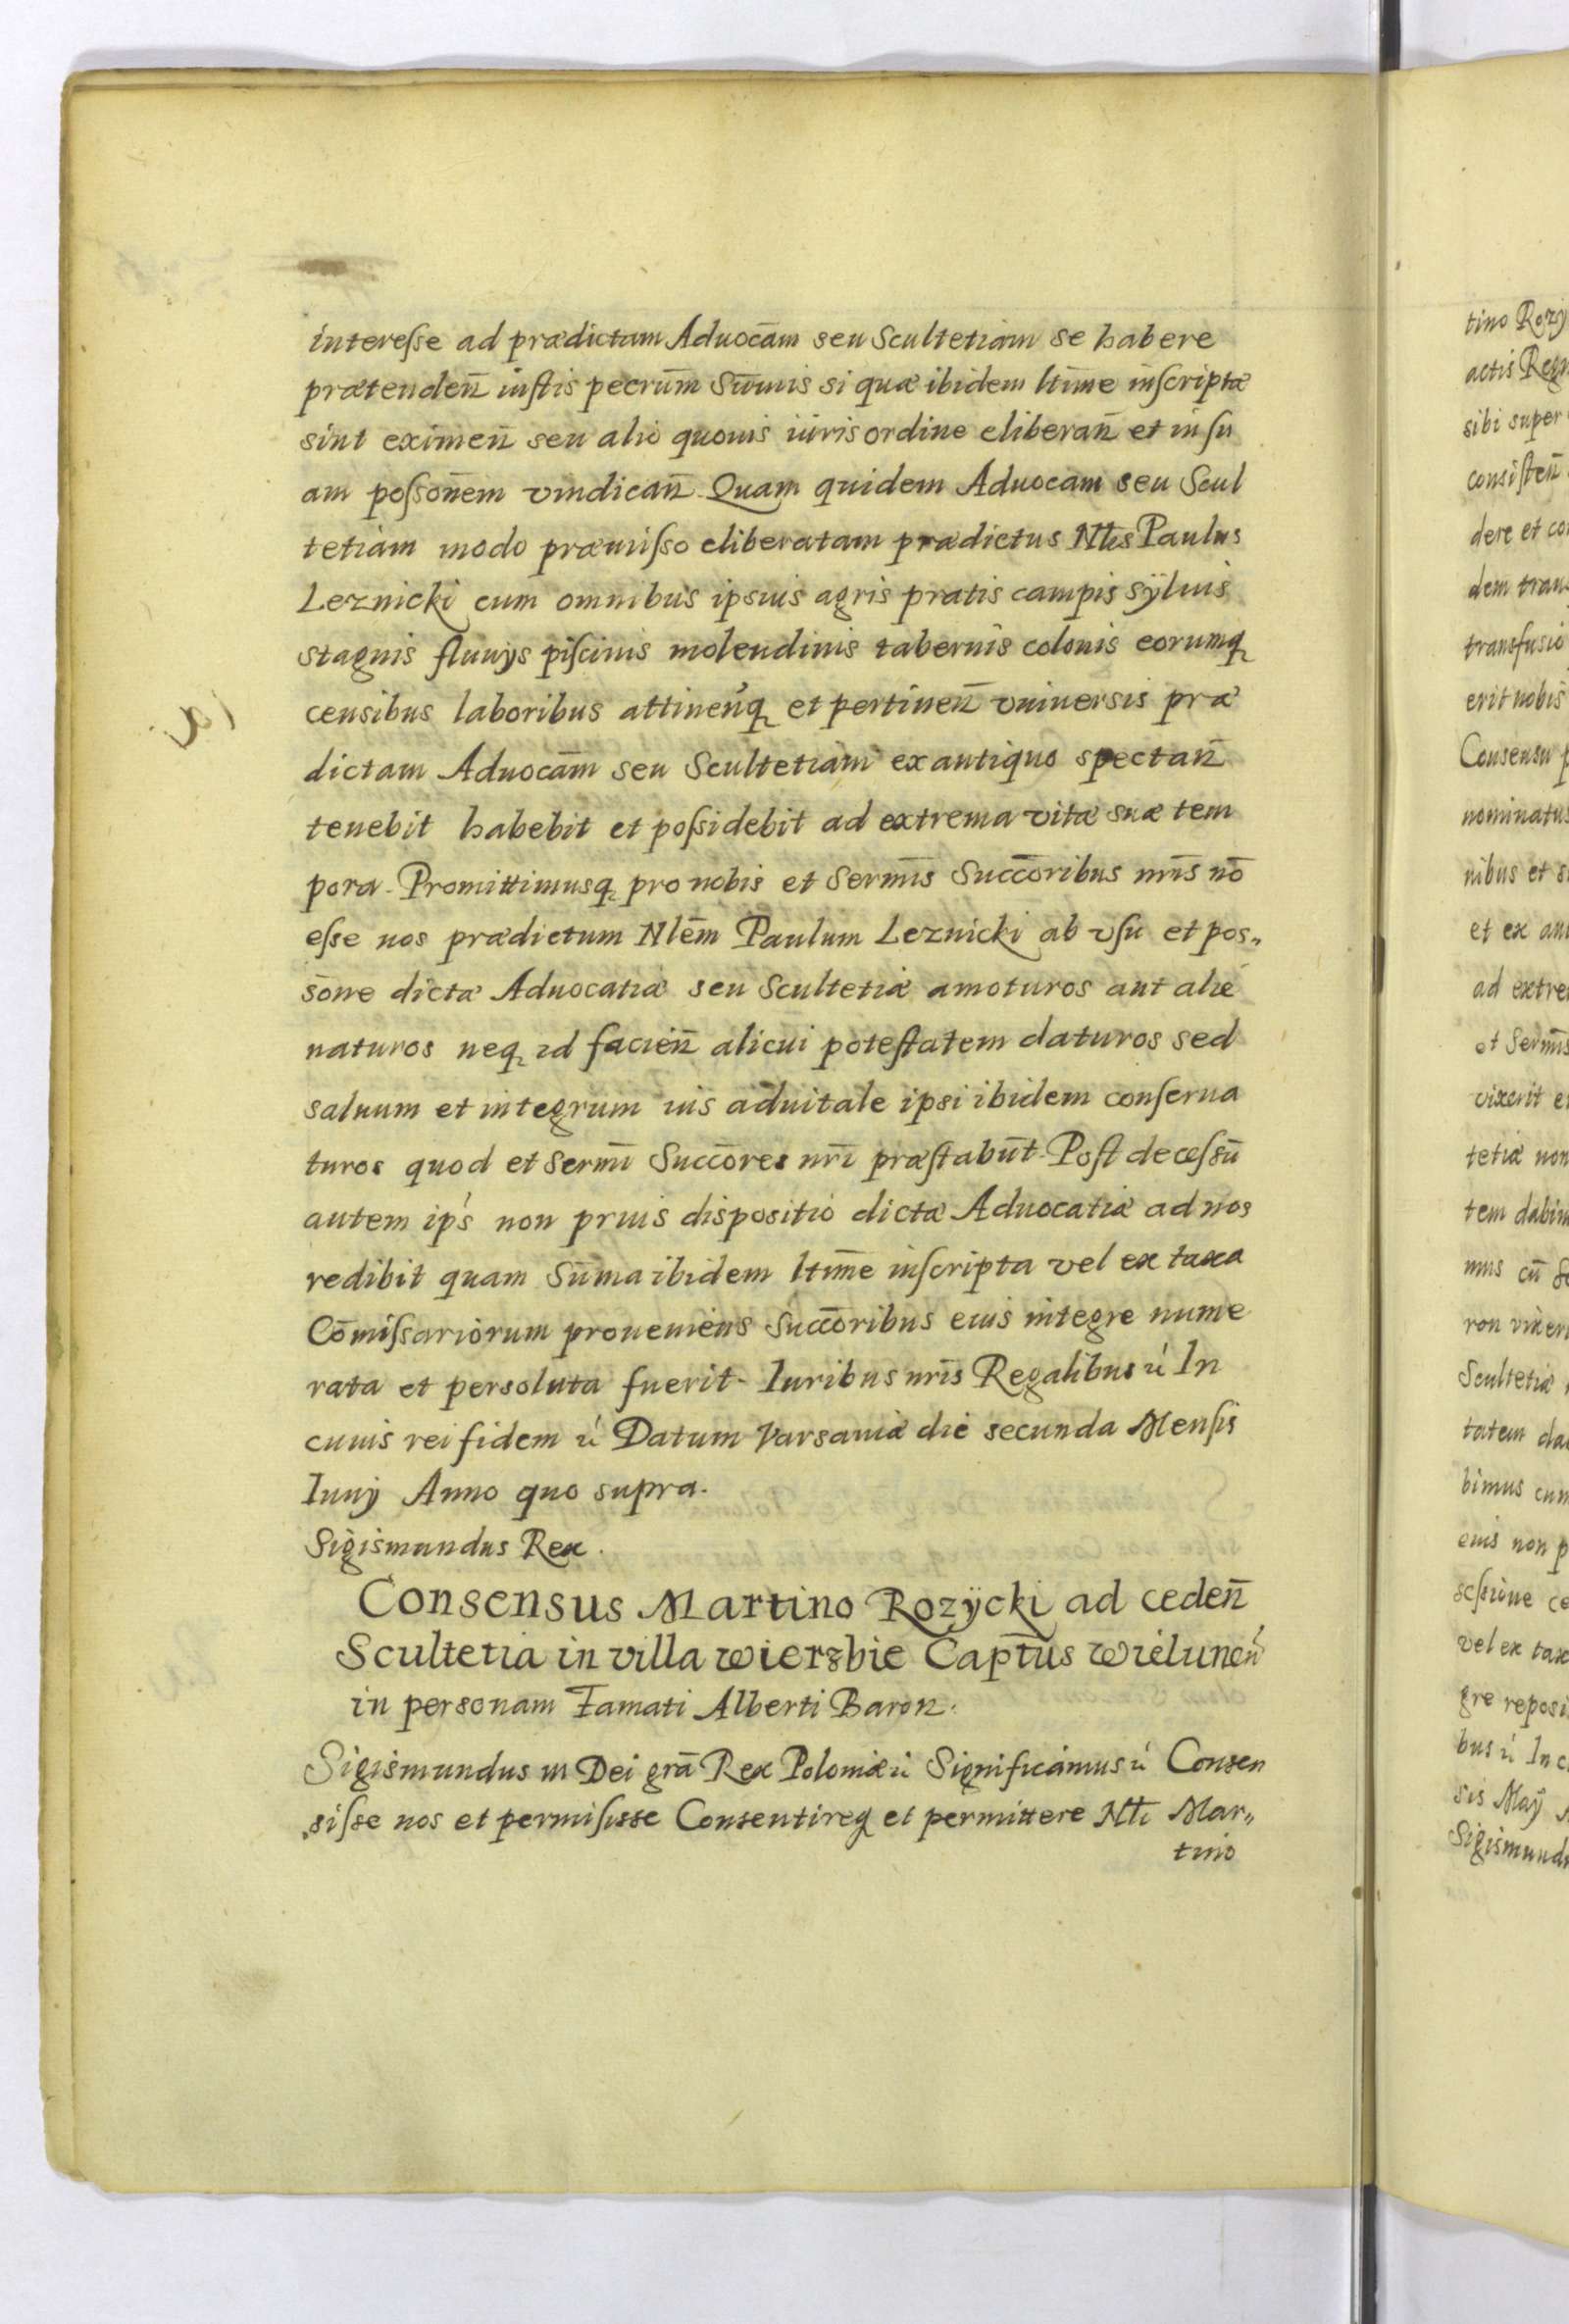 interesse ad prædictam Aduocām seu Scultetiam se habere
prætendeñ iustis pecrūm Sum̄is si quæ ibidem ltīme inscriptæ
sint eximeñ seu alio quouis iuris ordine eliberañ et in su
am possonem̄ vindicañ Quam quidem Aduocam seu Scul
tetiam modo præmisso eliberatam prædictus Nłis Paulus
Leznicki cum omnibus ipsius agris pratis campis sÿluis
stagnis fluuijs piscinis molendinis tabernis colonis eorumq
censibus laboribus attinenq et pertineñ vniuersis præ
dictam Aduocām seu Scultetiam ex antiquo spectañ
tenebit habebit et possidebit ad extrema vitæ suæ tem
pora. Promittimusq pro nobis et Sermīs Succōribus nrīs nō
esse nos prædictum Nlēm Paulum Leznicki ab vsu et pos„
sōne dictæ Aduocatiæ seu Scultetiæ amoturos aut alie
naturos neq id facieñ alicui potestatem daturos sed
saluum et integrum ius aduitale ipsi ibidem conserua
turos quod et Sermī Succōres nrī præstabūt. Post decessū
autem ip's non prius dispositio dictæ Aduocatiæ ad nos
redibit quam Sūma ibidem ltīme inscripta vel ex taxa
Cōmissariorum proueniens Succōribus eius integre nume
rata et persoluta fuerit. Iuribus nrīs Regalibus ú In
cuius rei fidem ú Datum Varsauiæ die secunda Mensis
Iunij Anno quo supra.
Sigismundus Rex.
Consensus Martino Rozÿcki ad cedeñ
Scultetia in villa Wierzbie Captūs Wieluneń
in personam Famati Alberti Baron.
Sigismundus III Dei grā Rex Poloniæ ú Significamus ú Consen
sisse nos et permisisse Consentireq et permittere Nłi Mar„
tino
tino Rozÿ
actis Regn
sibi super
consisteñ
dere et co
dem trans
transfusio
erit nobis
Consensu p
nominatus
nibus et s
et ex ant
ad extre
et Sermīs
vixerit e
tetiæ non
tem dabim
mus cū S
ron vixeri
Scultetiæ
tatem da
bimus cum
eius non p
sessione ce
vel ex tax
gre reposi
bus ú In c
sis Maÿ A
Sigismundu